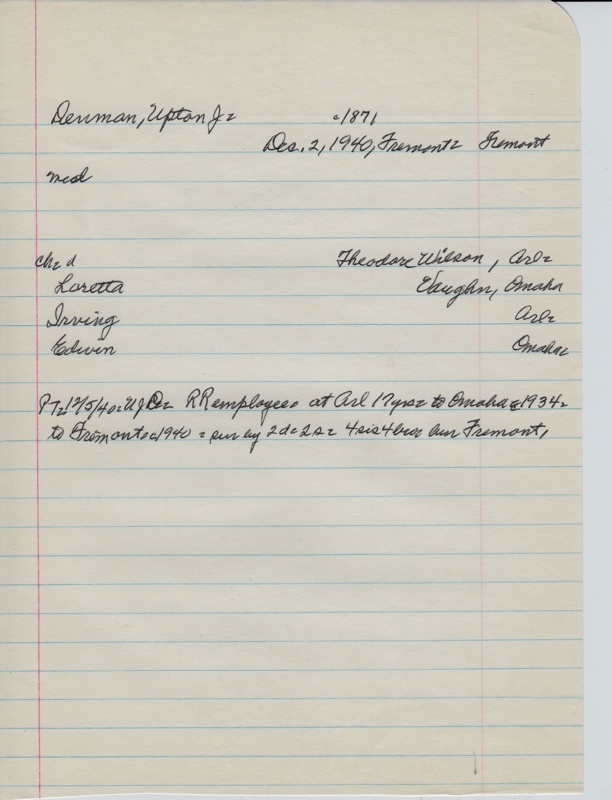 Denman, Upton J= c1871
Dec. 2, 1940, Fremont= Fremont
med
ch= d Theodore Wilson, Arl=
Loretta Vaughn, Omaha
Irving Arl=
Edwin Omaha=
PT=12/5/40= UJD= RR employee= at Arl 17yrs= to Omaha= c1934=
to Fremont=c1940 = sur by 2d= 2s= 4sis 4bro= bur Fremont,